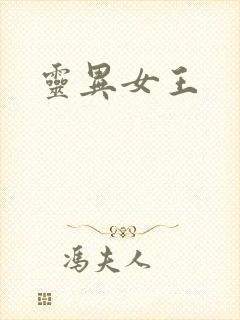 靈異女王
馮夫人